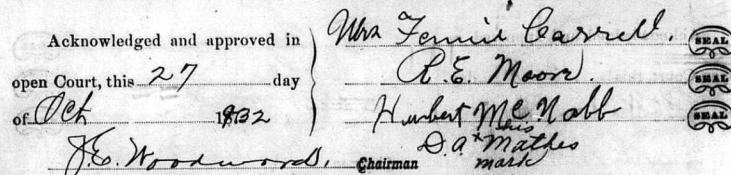 Acknowledged and approved in
open Court, this 27 day
of Oct 1932
J.E. Woodward, Chairman
Mrs Fennie Carrell. SEAL
R.E. Moore. SEAL
Hurbert McNabb SEAL
his
D.A. x Mathes
mark